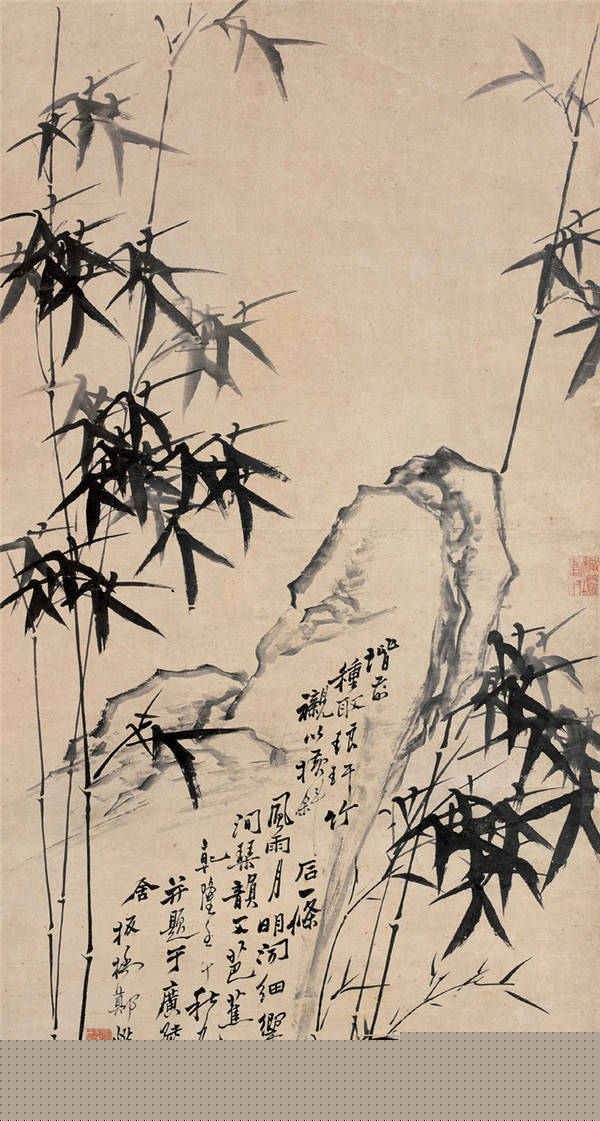 堦前
種取琅玕竹
襯以橫斜石一條
風雨月明聞細響
琴韻芭蕉
乾隆壬午秋
并題于廣陵
舍板橋鄭燮